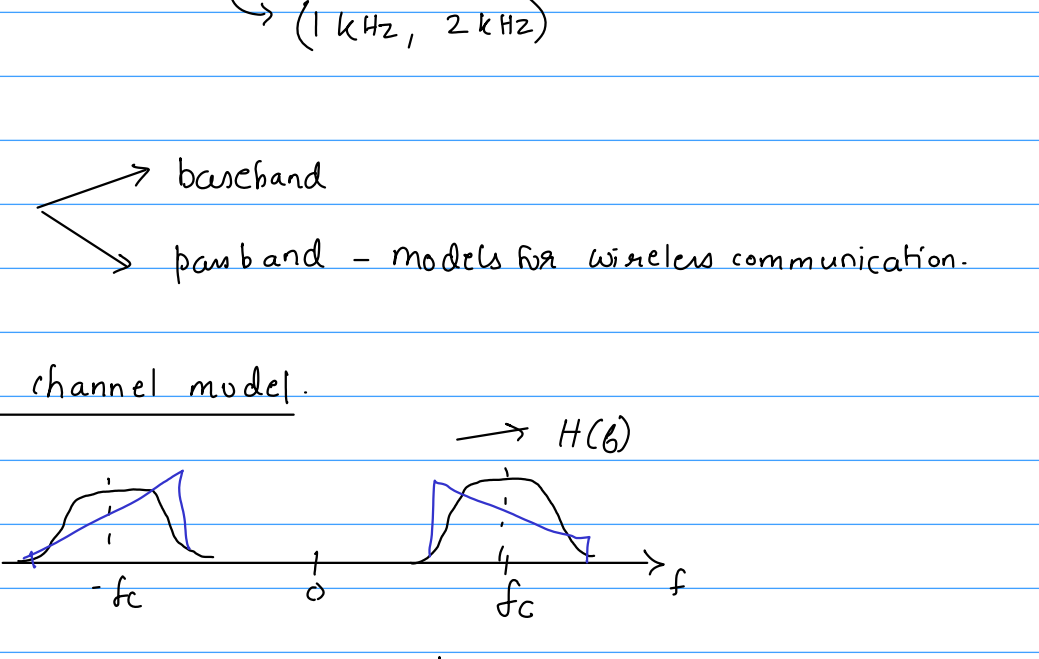 (1 kHz, 2 kHz)
baseband
passband - models for wireless communication.
channel model.
H(f)
-fc 0 fc f